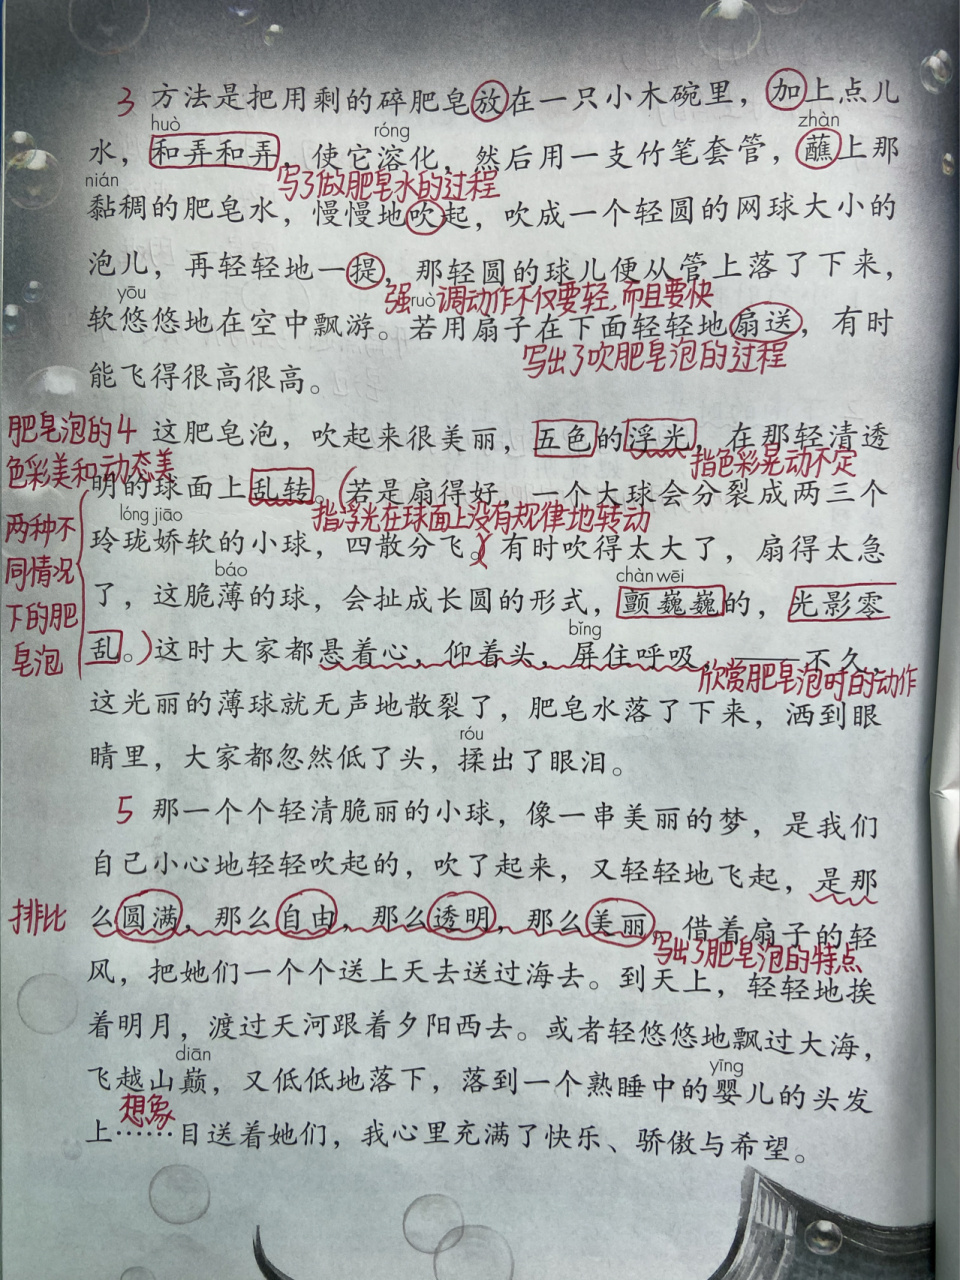 3 方法是把用剩的碎肥皂放在一只小木碗里，加上点儿
huò róng zhàn
水，和弄和弄，使它溶化，然后用一支竹笔套管，蘸上那
写了做肥皂水的过程
nián
黏稠的肥皂水，慢慢地吹起，吹成一个轻圆的网球大小的
泡儿，再轻轻地一提，那轻圆的球儿便从管上落了下来，
强调动作不仅要轻，而且要快
yōu ruò
软悠悠地在空中飘游。若用扇子在下面轻轻地扇送，有时
写出了吹肥皂泡的过程
能飞得很高很高。
肥皂泡的
色彩美和动态美
4 这肥皂泡，吹起来很美丽，五色的浮光，在那轻清透
指色彩晃动不定
明的球面上乱转。（若是扇得好，一个大球会分裂成两三个
指浮光在球面上没有规律地转动
两种不
同情况
下的肥
皂泡
lóng jiāo
玲珑娇软的小球，四散分飞。）有时吹得太大了，扇得太急
báo chàn wēi
了，这脆薄的球，会扯成长圆的形式，颤巍巍的，光影零
bǐng
乱。）这时大家都悬着心，仰着头，屏住呼吸，——不久，
欣赏肥皂泡时的动作
这光丽的薄球就无声地散裂了，肥皂水落了下来，洒到眼
róu
睛里，大家都忽然低了头，揉出了眼泪。
5 那一个个轻清脆丽的小球，像一串美丽的梦，是我们
自己小心地轻轻吹起的，吹了起来，又轻轻地飞起，是那
排比
么圆满，那么自由，那么透明，那么美丽。借着扇子的轻
写出了肥皂泡的特点
风，把她们一个个送上天去送过海去。到天上，轻轻地挨
着明月，渡过天河跟着夕阳西去。或者轻悠悠地飘过大海，
diān yīng
飞越山巅，又低低地落下，落到一个熟睡中的婴儿的头发
想象
上……目送着她们，我心里充满了快乐、骄傲与希望。